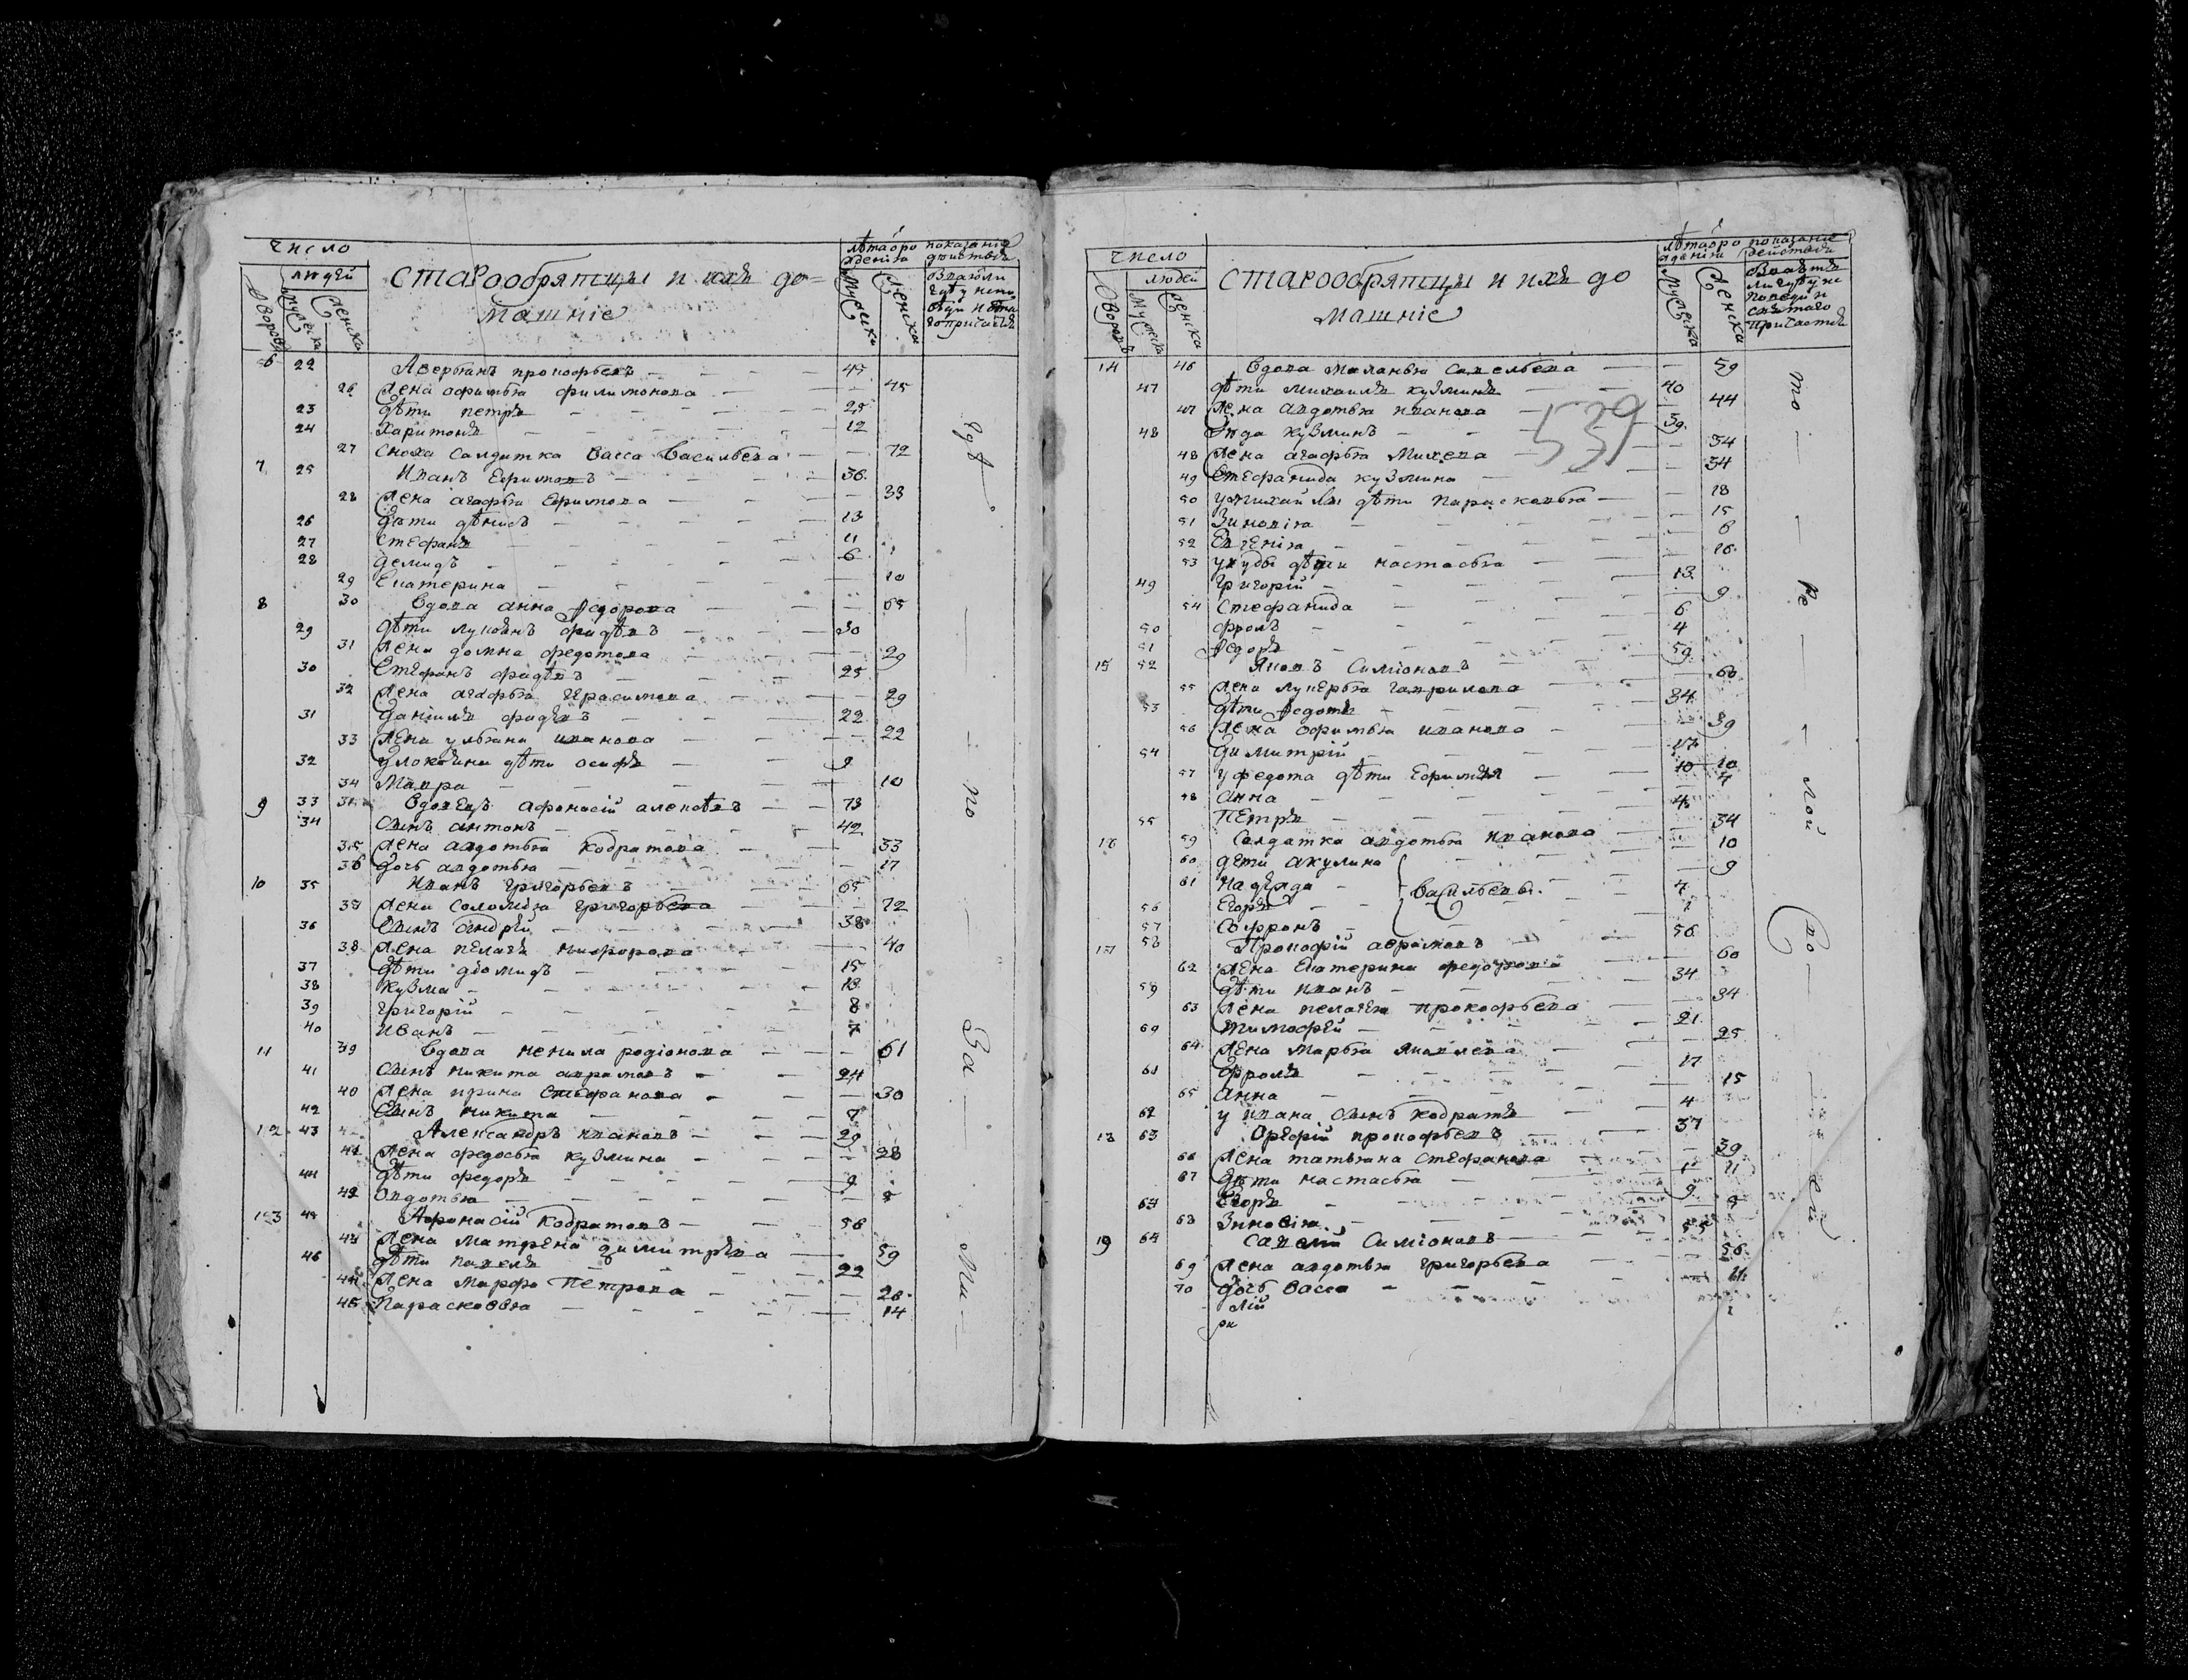 число
людей
дворовъ
мужеска
женска
старообрятцы и ихъ до=
машніе
лѣта о ро
жденія
мужеска
женска
показаніе
дѣйствія
6 22 Аверьянъ прокофьевъ 47
26 жена офимья филимонова 45
23 дѣти петръ 25
24 харитонъ 12
27 сноха салдатка васса васильева 72
7 25 Иванъ Ефимовъ 36
28 жена агафья Ефимова 33
26 дѣти денисъ 13
27 стефанъ 11
28 демидъ 6
29 Екатерина 10
8 30 вдова анна федорова 65
29 дѣти лукоянъ фадѣевъ 30
31 жена домна федотова 29
30 Стефанъ фадѣевъ 25
32 жена агафья Герасимова 29
31 даніилъ фадѣевъ 22
33 жена ульяна иванова 22
32 у локояна дѣти осифъ 9
34 Мавра 10
9 33 вдовецъ афонасій алексѣевъ 73
34 сынъ антонъ 42
35 жена авдотья кодратова 33
36 дочь авдотья 17
10 35 Иванъ григорьевъ 65
37 жена соломѣя григорьева 72
36 сынъ андрей 38
38 жена пелагѣя никифорова 40
37 дѣти діомидъ 15
38 кузма 13
39 григорій 8
40 иванъ 7
11 39 вдова ненила родіонова 61
41 сынъ никита аврамовъ 24
40 жена ирина Стефанова 30
42 сынъ никита 7
12 43 Александръ ивановъ 29
41 жена федосья кузмина 28
44 дѣти федоръ 9
42 авдотья 8
13 45 Афонасій кодратовъ 56
43 жена матрена димитрѣва 59
46 дѣти павелъ 22
44 жена марфа петрова 20
45 Парасковья 14
число
людей
дворовъ
мужеска
женска
старообрятцы и ихъ до
машніе
лѣта о ро
жденія
мужеска
женска
показаніе
дѣйствія
539
14 46 вдова маланья савельева 59
47 дѣти михаилъ кузминъ 40
47 жена авдотья иванова 44
48 Іюда кузминъ 39
48 жена агафья Михева 34
49 Стефанида кузмина 34
50 у михайлы дѣти параскевья 18
51 Зиновія 15
52 Евгенія 6
53 у юды дѣти настасья 16
49 григорій 13
54 стефанида 9
50 фролъ 6
51 федоръ 4
15 52 Яковъ Симіоновъ 59
55 жена лукерья гаврилова 60
53 дѣти федотъ 34
56 жена офимья иванова 39
54 димитрій 17
57 у федота дѣти Ефимія 10
58 анна 7
55 петръ 4
16 59 Солдатка авдотья иванова 34
60 дети акулина 10
61 надежда 9
васильевы
56 Егоръ 4
57 Софронъ 1
17 58 Прокофій аврамовъ 56
62 жена Екатерина федорова 60
59 дѣти иванъ 34
63 жена пелагея прокофьева 34
60 тимофей 21
64 жена марья яковлева 25
61 фролъ 17
65 анна 15
62 у ивана сынъ кодратъ 4
18 63 Орефій прокофьевъ 37
66 жена татьяна стефанова 39
67 дѣти настасья 11
64 Егоръ 9
68 Зиновія
19 64 Савелій Симіоновъ 55
69 жена авдотья григорьева 56
70 дочь васса